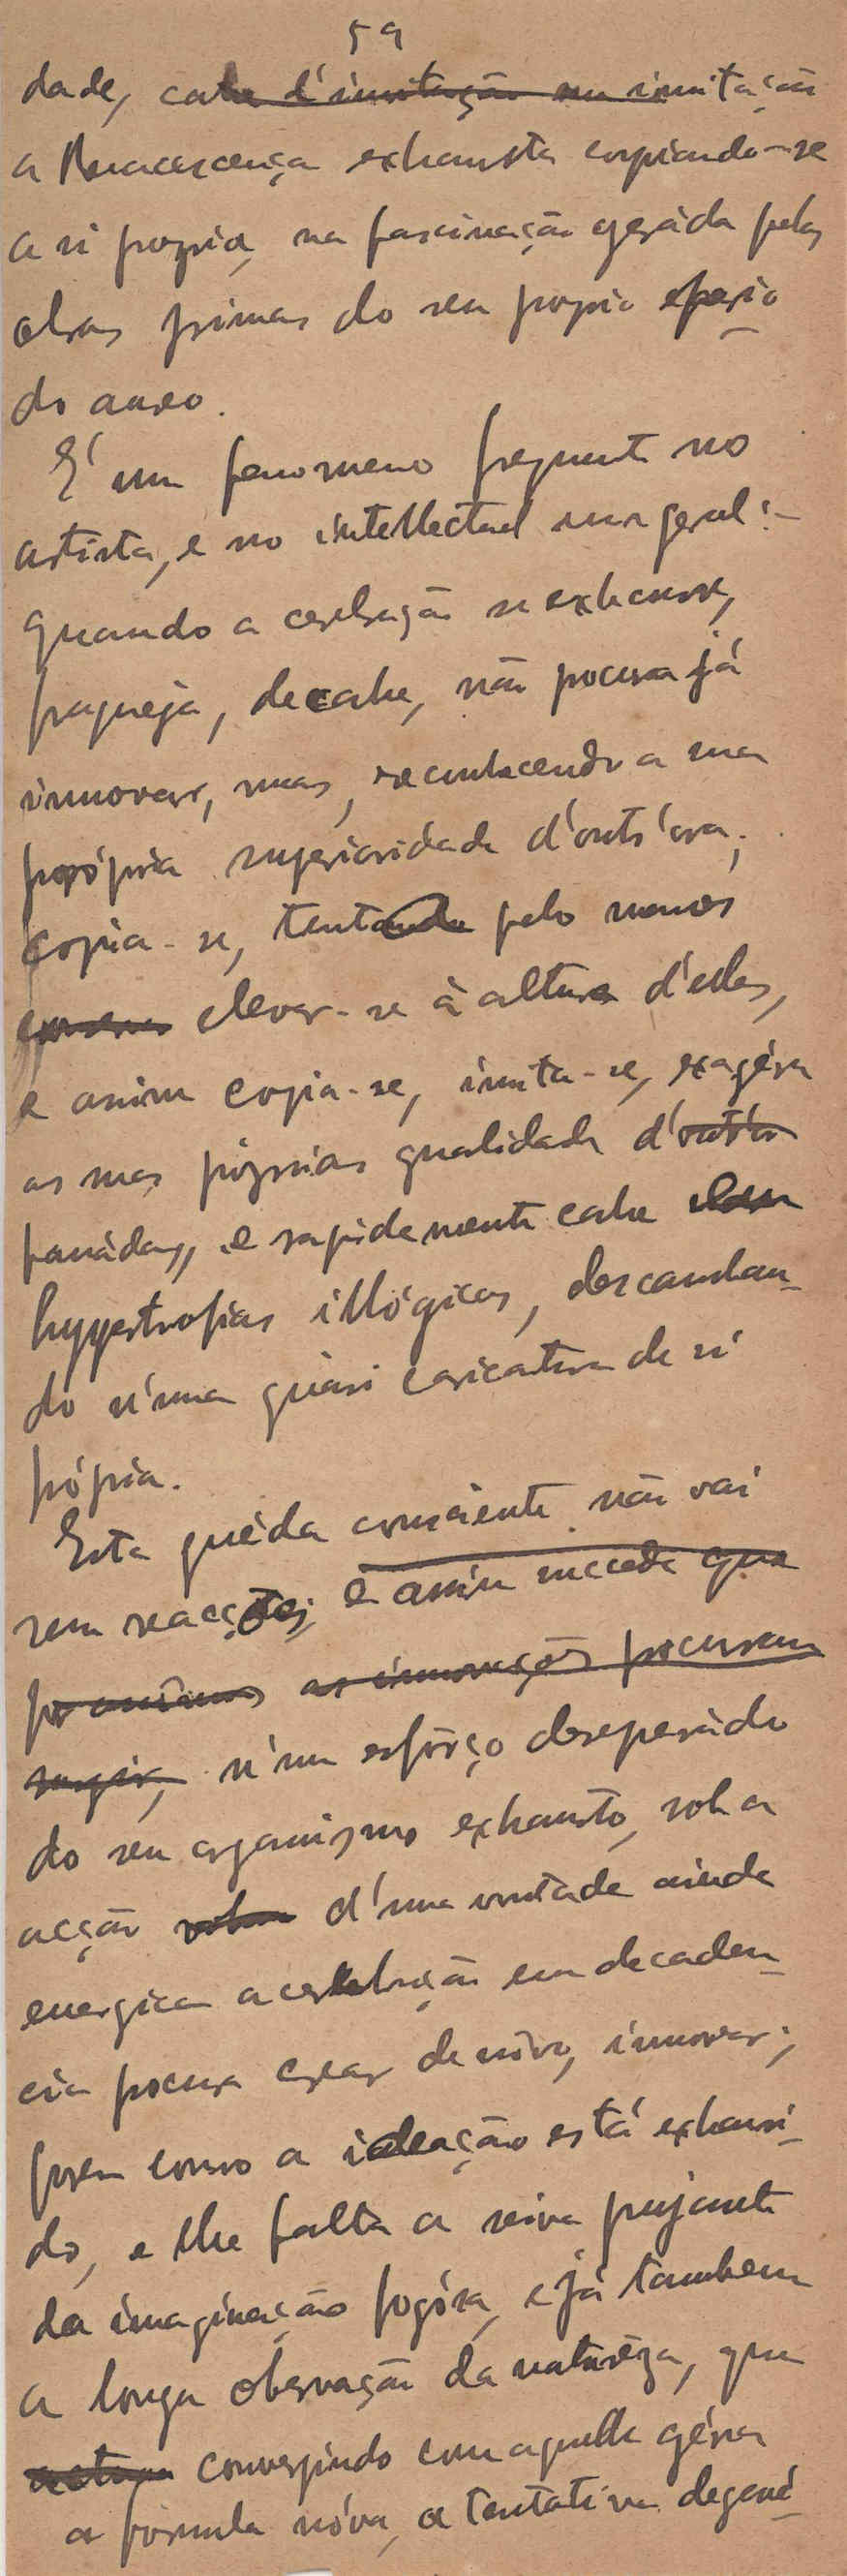 59
dade, ~~cahe d'imitação em imitação~~
a Renascença exhausta copiando-se
a si propria, na fascinação geráda pelas
obras primas do seu proprio período
do aureo.
É um fenomeno frequente no
artista, e no intellectual em geral:-
quando a cerebração se exhaure,
fraqueja, decahe, não procura já
innovar, mas, reconhecendo a sua
própria superioridade d'outr'ora,
copia-se, tenta pelo menos
elevar-se à altura d'elles,
e assim copia-se, imita-se, exagéra
as suas próprias qualidades d'~~outr'ora~~
fanádas, e rapidamente cahe
hypertrofias illógicas, descamban-
do n'uma quási caricatura de si
própria.
Esta quéda consciente não vai
sem reacções; ~~e assim succede que~~
~~por as innovações procuram~~
~~surgir,~~ n'um esfôrço desesperádo
do seu organismo exhausto, sob a
acção d'uma vontade ainda
energica a cerebração em decaden-
cia procura crear de nôvo, innovar;
porem como a ideação está exhauri-
do, e lhe falta a seiva pujante
da imaginação fogósa, e já tambem
a longa observação da naturêza, que
convergindo com aquella géra
a fórmula nóva, a tentativa degené-